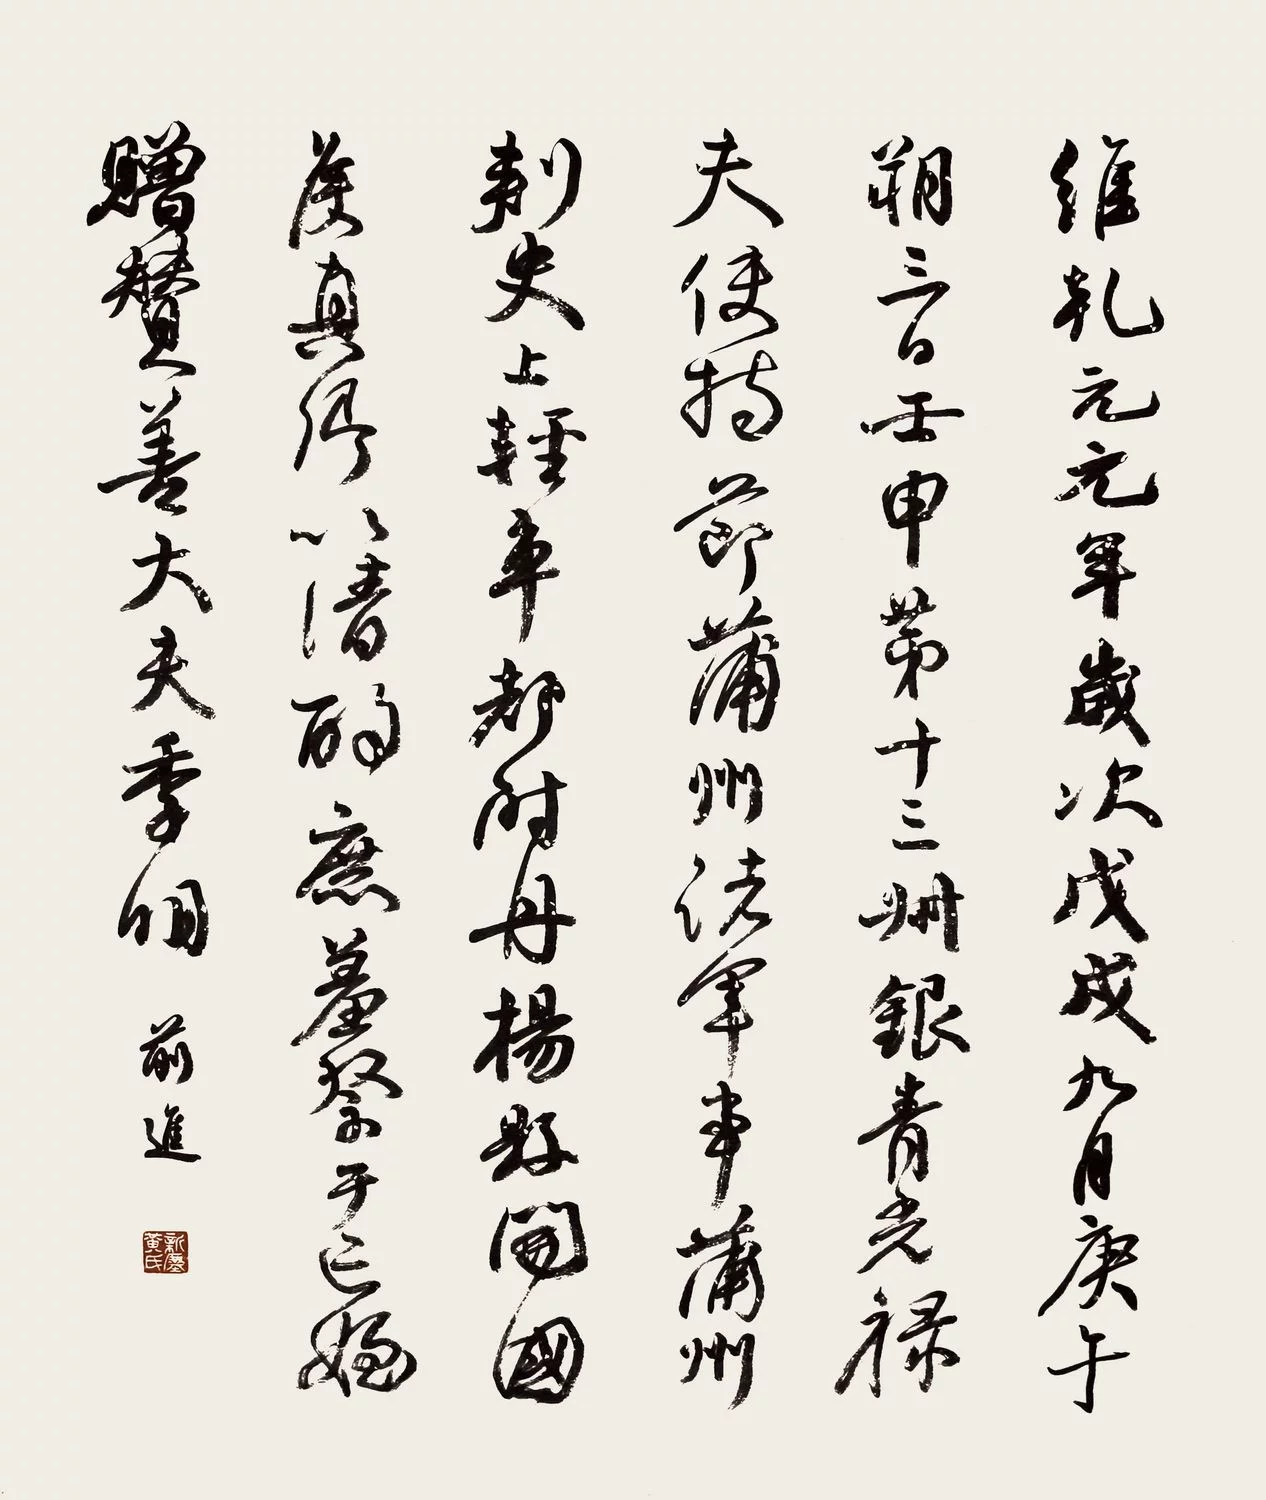 維乾元元年歲次戊戌九月庚午
朔三日壬申第十三叔銀青光祿
夫使持節蒲州諸軍事蒲州
刺史上輕車都尉丹楊縣開國
侯真卿以清酌庶羞祭于亡姪
贈贊善大夫季明 前進
黃氏